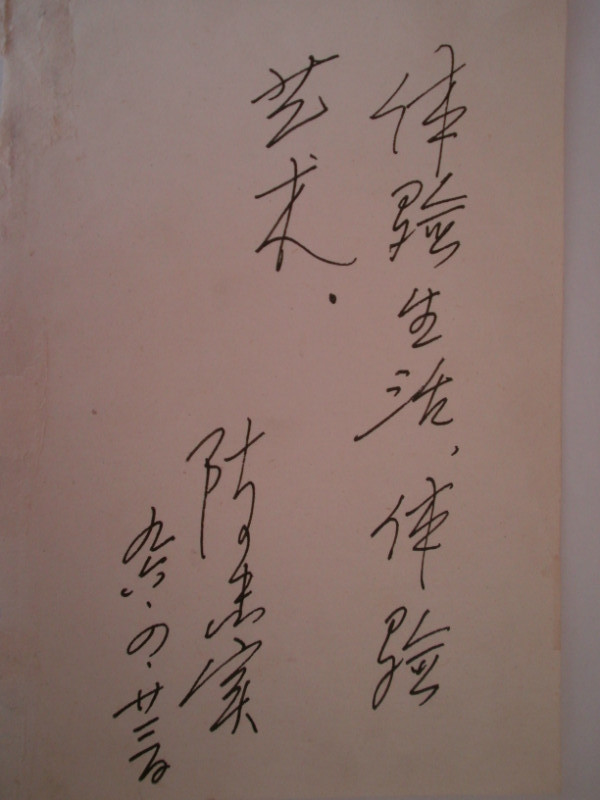 体验生活，体验
艺术．
陈忠实
九六．四．廿三日